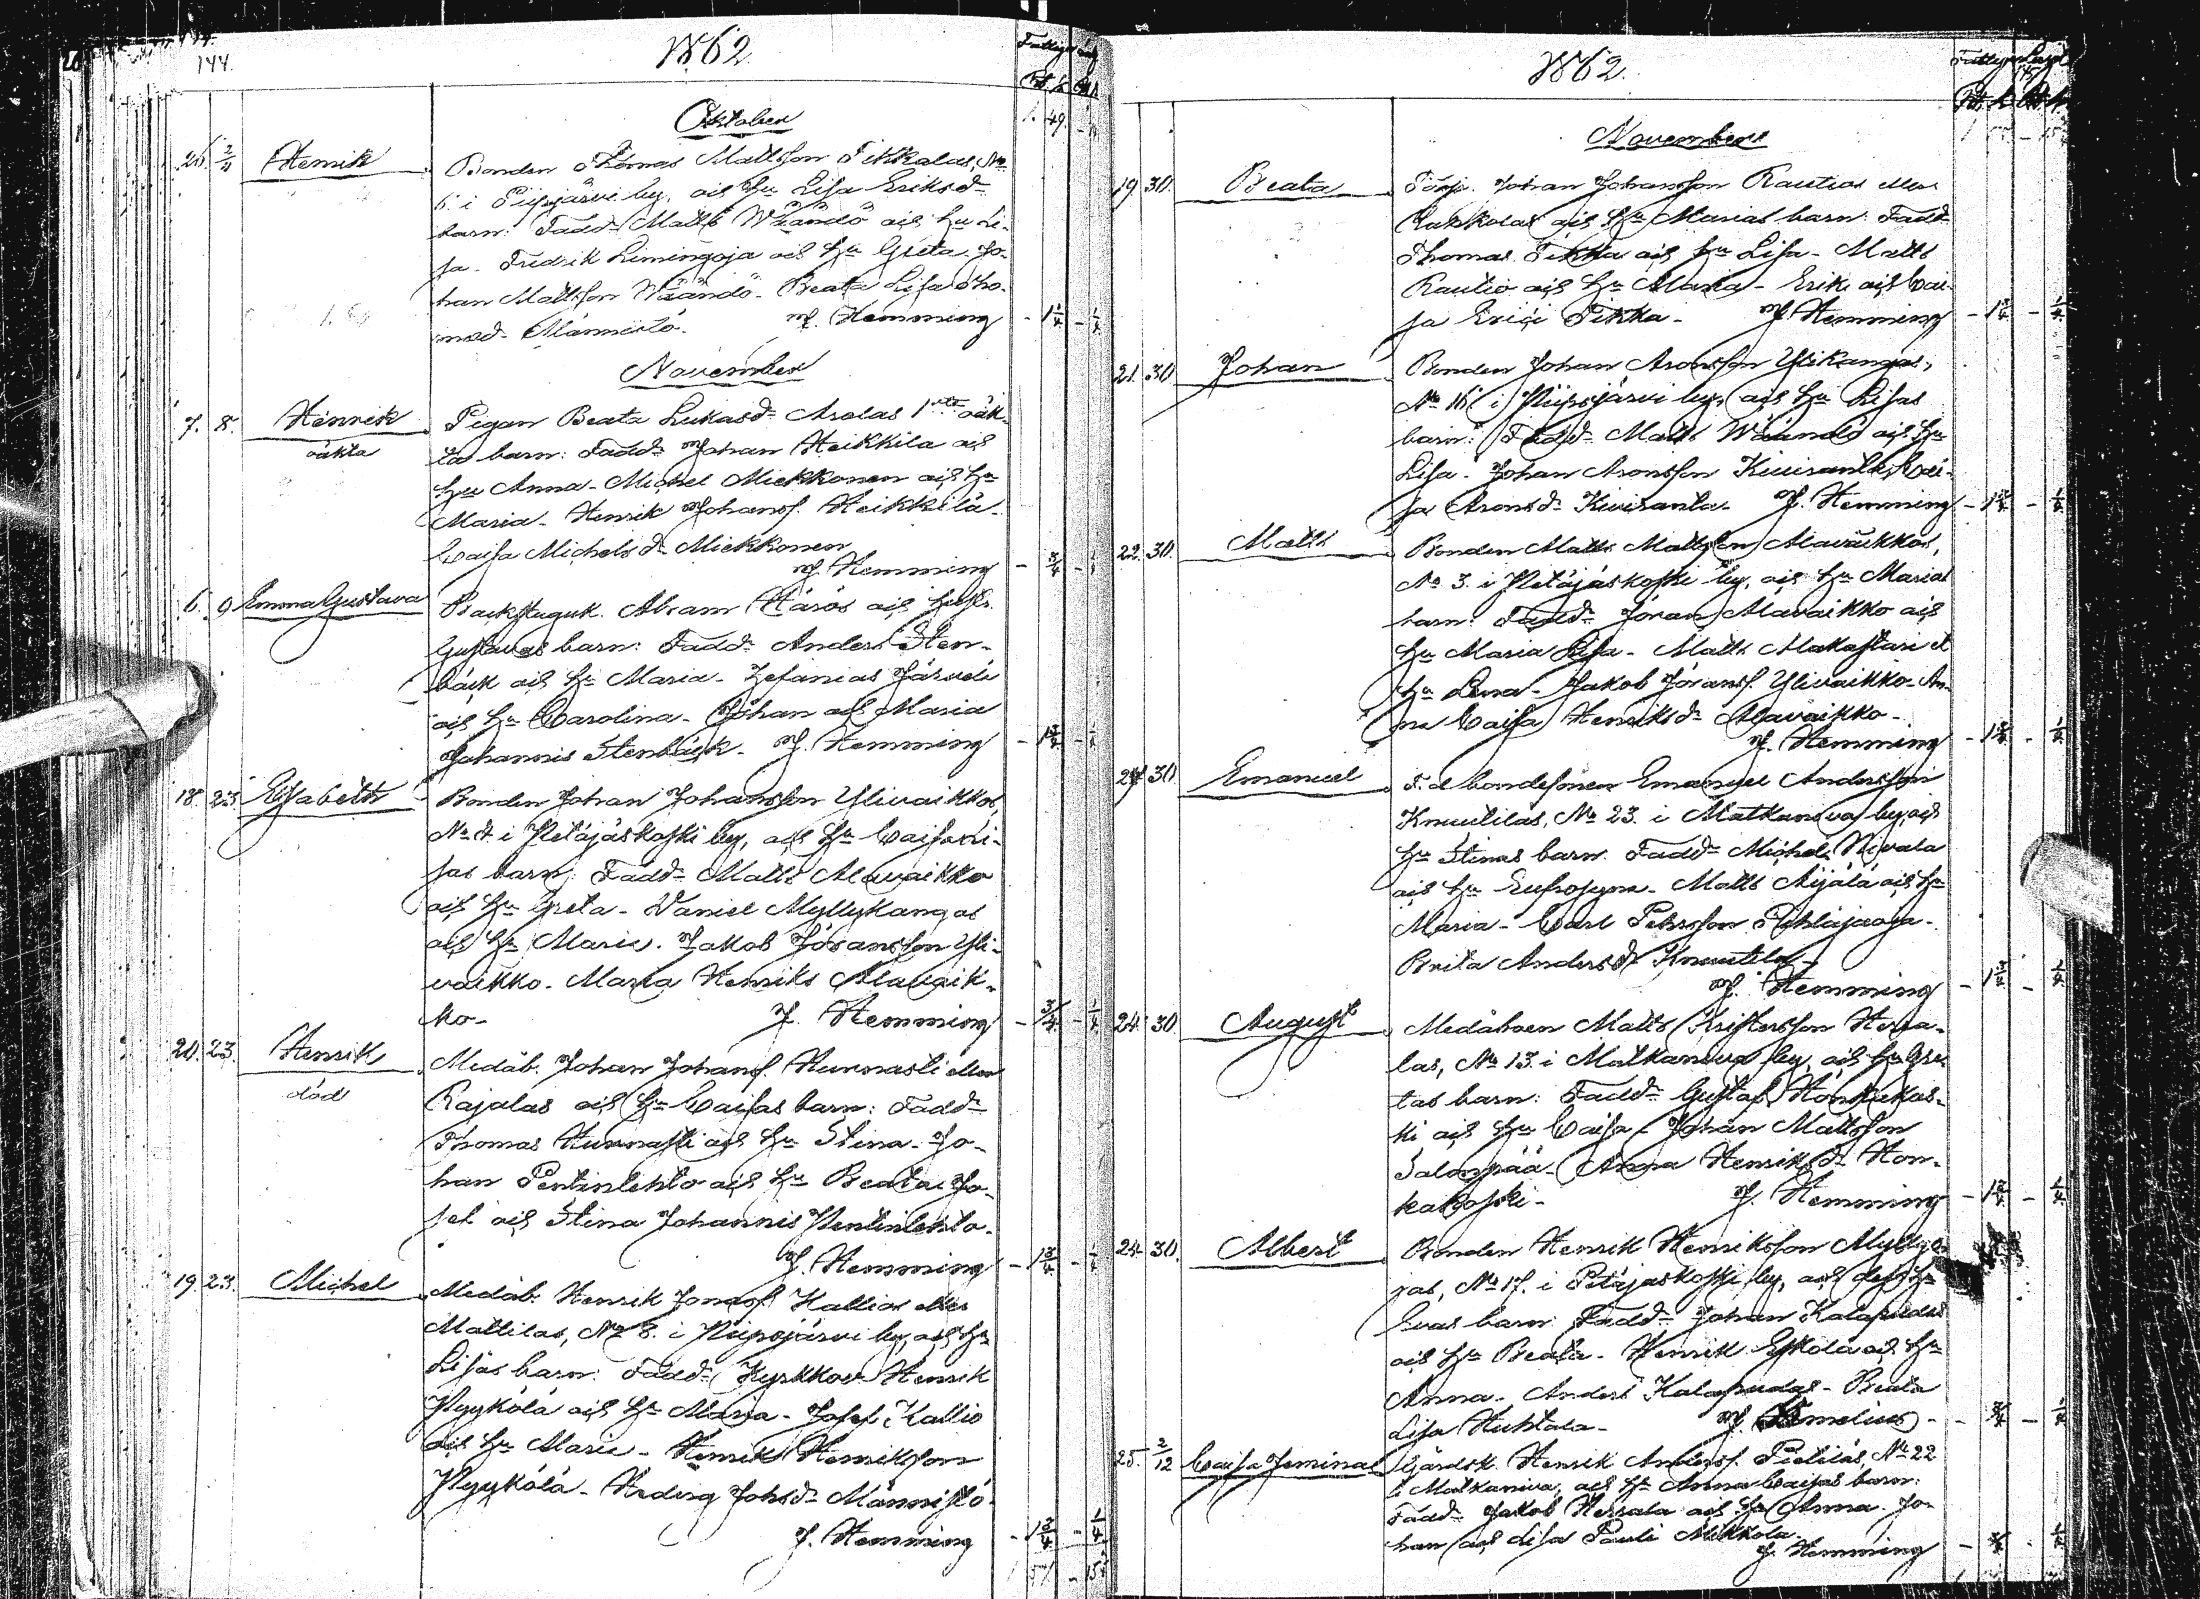 144.
1862
October
26 2/11 Henrik
Bonden Thomas Mattsson Tikkalas, No
6 i Piipsjärvi by, och hu Lisa Eriksdr
barn: Faddr Matts Wäändö och hu Li-
sa. Fredrik Limingoja och hu Greta. Jo-
han Mattsson Wäändö. Beata Lisa Tho-
masdr Männistö. J. Hemming
November
7. 8. Henrik
oäkta
Pigan Beata Lukasdr Arolas 1sta oäk-
ta barn: Faddr Johan Heikkilä och
hu Anna. Michel Miekkonen och hu
Maria. Henrik Johanss. Heikkilä.
Caisa Michelsdr Miekkonen
J. Hemming
6. 9 Emma Gustava
Backstuguk. Abram Härös och
Gustavas barn: Faddr Anders Sten-
bäck och hu Maria. Zefanias Järvelä
och hu Carolina. Johan och Maria
Johannis Stenbäck. J. Hemming
18. 23. Elisabeth
Bonden Johan Johansson Ylivaikkos,
No 2. i Petäjäskoski by, och hu Caisa
barn: Faddr Matts Alavaikko
och hu Greta. Daniel Myllykangas
och hu Maria. Jakob Göransson Yli-
vaikko. Maria Henriks Alavaik-
ko. J. Hemming
20. 23. Henrik
död
Medåb. Johan Johanss. Kunnasti eller
Rajalas och hu Caisas barn: Faddr
Thomas Kunnasti och hu Stina. Jo-
han Pentinlehto och hu Beata. Jo-
sef och Stina Johannis Pentinlehto.
J. Hemming
19. 23. Michel
Medåb. Henrik Jonass. Kallios eller
Mattilas, No 8. i Piipsjärvi by, och hu
Lisas barn: Faddr Kyrkkov. Henrik
Pyykölä och hu Maria. Josef Kallio
och hu Maria. Henrik Henriksson
Pyykölä. Hedvig Johsdr Männistö.
J. Hemming
1862.
November
19 30. Beata
Torp. Johan Johansson Rautios eller
Kukkolas och hu Marias barn: Faddr
Thomas Tikka och hu Lisa. Matts
Rautio och hu Maria. Erik och Cai-
sa Erici Tikka. J. Hemming
21. 30 Johan
Bonden Johan Aronsson Ylikangas,
No 16 i Piipsjärvi by, och hu Lisas
barn: Faddr Matts Wäändö och hu
Lisa. Johan Aronsson Kiviranta. Cai-
sa Aronsdr Kiviranta. J. Hemming
22. 30. Matts
Bonden Matts Mattsson Alavaikkos,
No 3. i Petäjäskoski by, och hu Marias
barn: Faddr Göran Alavaikko och
hu Maria Lisa. Matts Makastari et
hu Lena. Jakob Göranss. Ylivaikko. An-
na Caisa Henriksdr Alavaikko.
J. Hemming
24 30 Emanuel
F. d. bondesonen Emanuel Andersson
Knuutilas, No 23. i Matkaniva by, och
hu Stinas barn. Faddr Michel Nivala
och hu Eufrosyna. Matts Äijälä och hu
Maria. Carl Pehrsson Pihlajaoja.
Brita Andersdr Knuutila.
J. Hemming
24. 30. August
Medåboen Matts Kristersson Herra-
las, No 13. i Matkaniva by, och hu Gre-
tas barn: Faddr Gustaf Honkakos-
ki och hu Caisa. Johan Mattsson
Salonpää. Anna Henriksdr Hon-
kakoski. J. Hemming
24. 30. Albert
Bonden Henrik Henriksson Mylly
jas, No 17. i Petäjäskoski by, och dess hu
Evas barn: Faddr Johan Kalapudas
och hu Beata. Henrik Eskola och hu
Anna. Anders Kalapudas. Beata
Lisa Huhtala.
25. 2/12 Caisa Jemina
Gårdsk. Henrik Anderss. Pietiläs, No 22
i Matkaniva, och hu Anna Caisas barn:
Faddr Jakob Herrala och hu Anna. Jo-
han och Lisa Pauli Mikkola.
J. Hemming